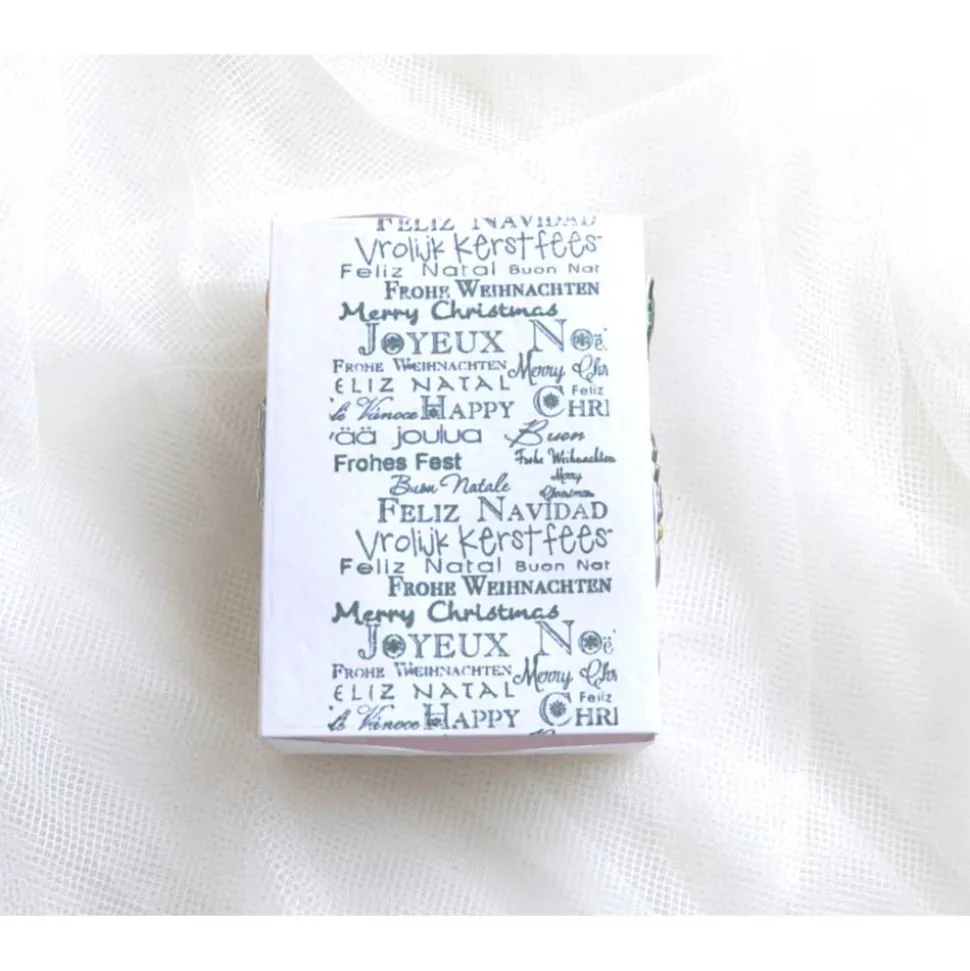 FELIZ NAVIDAD
Vrolijk kerstfees
Feliz Natal Buon Nat
FROHE WEIHNACHTEN
Merry Christmas
JOYEUX Noë
FROHE WEIHNACHTEN Merry Chr
ELIZ NATAL Feliz
lé Vánoce HAPPY CHRI
vää joulua Buon
Frohes Fest Frohe Weihnachten
Buon Natale Merry Christmas
FELIZ NAVIDAD
Vrolijk kerstfees
Feliz Natal Buon Nat
FROHE WEIHNACHTEN
Merry Christmas
JOYEUX Noë
FROHE WEIHNACHTEN Merry Chr
ELIZ NATAL Feliz
lé Vánoce HAPPY CHRI